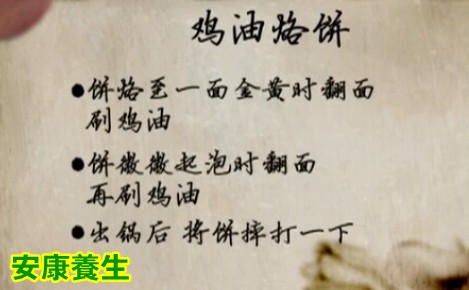 鸡油烙饼
●饼烙至一面金黄时翻面
刷鸡油
●饼微微起泡时翻面
再刷鸡油
●出锅后 将饼摔打一下
安康養生